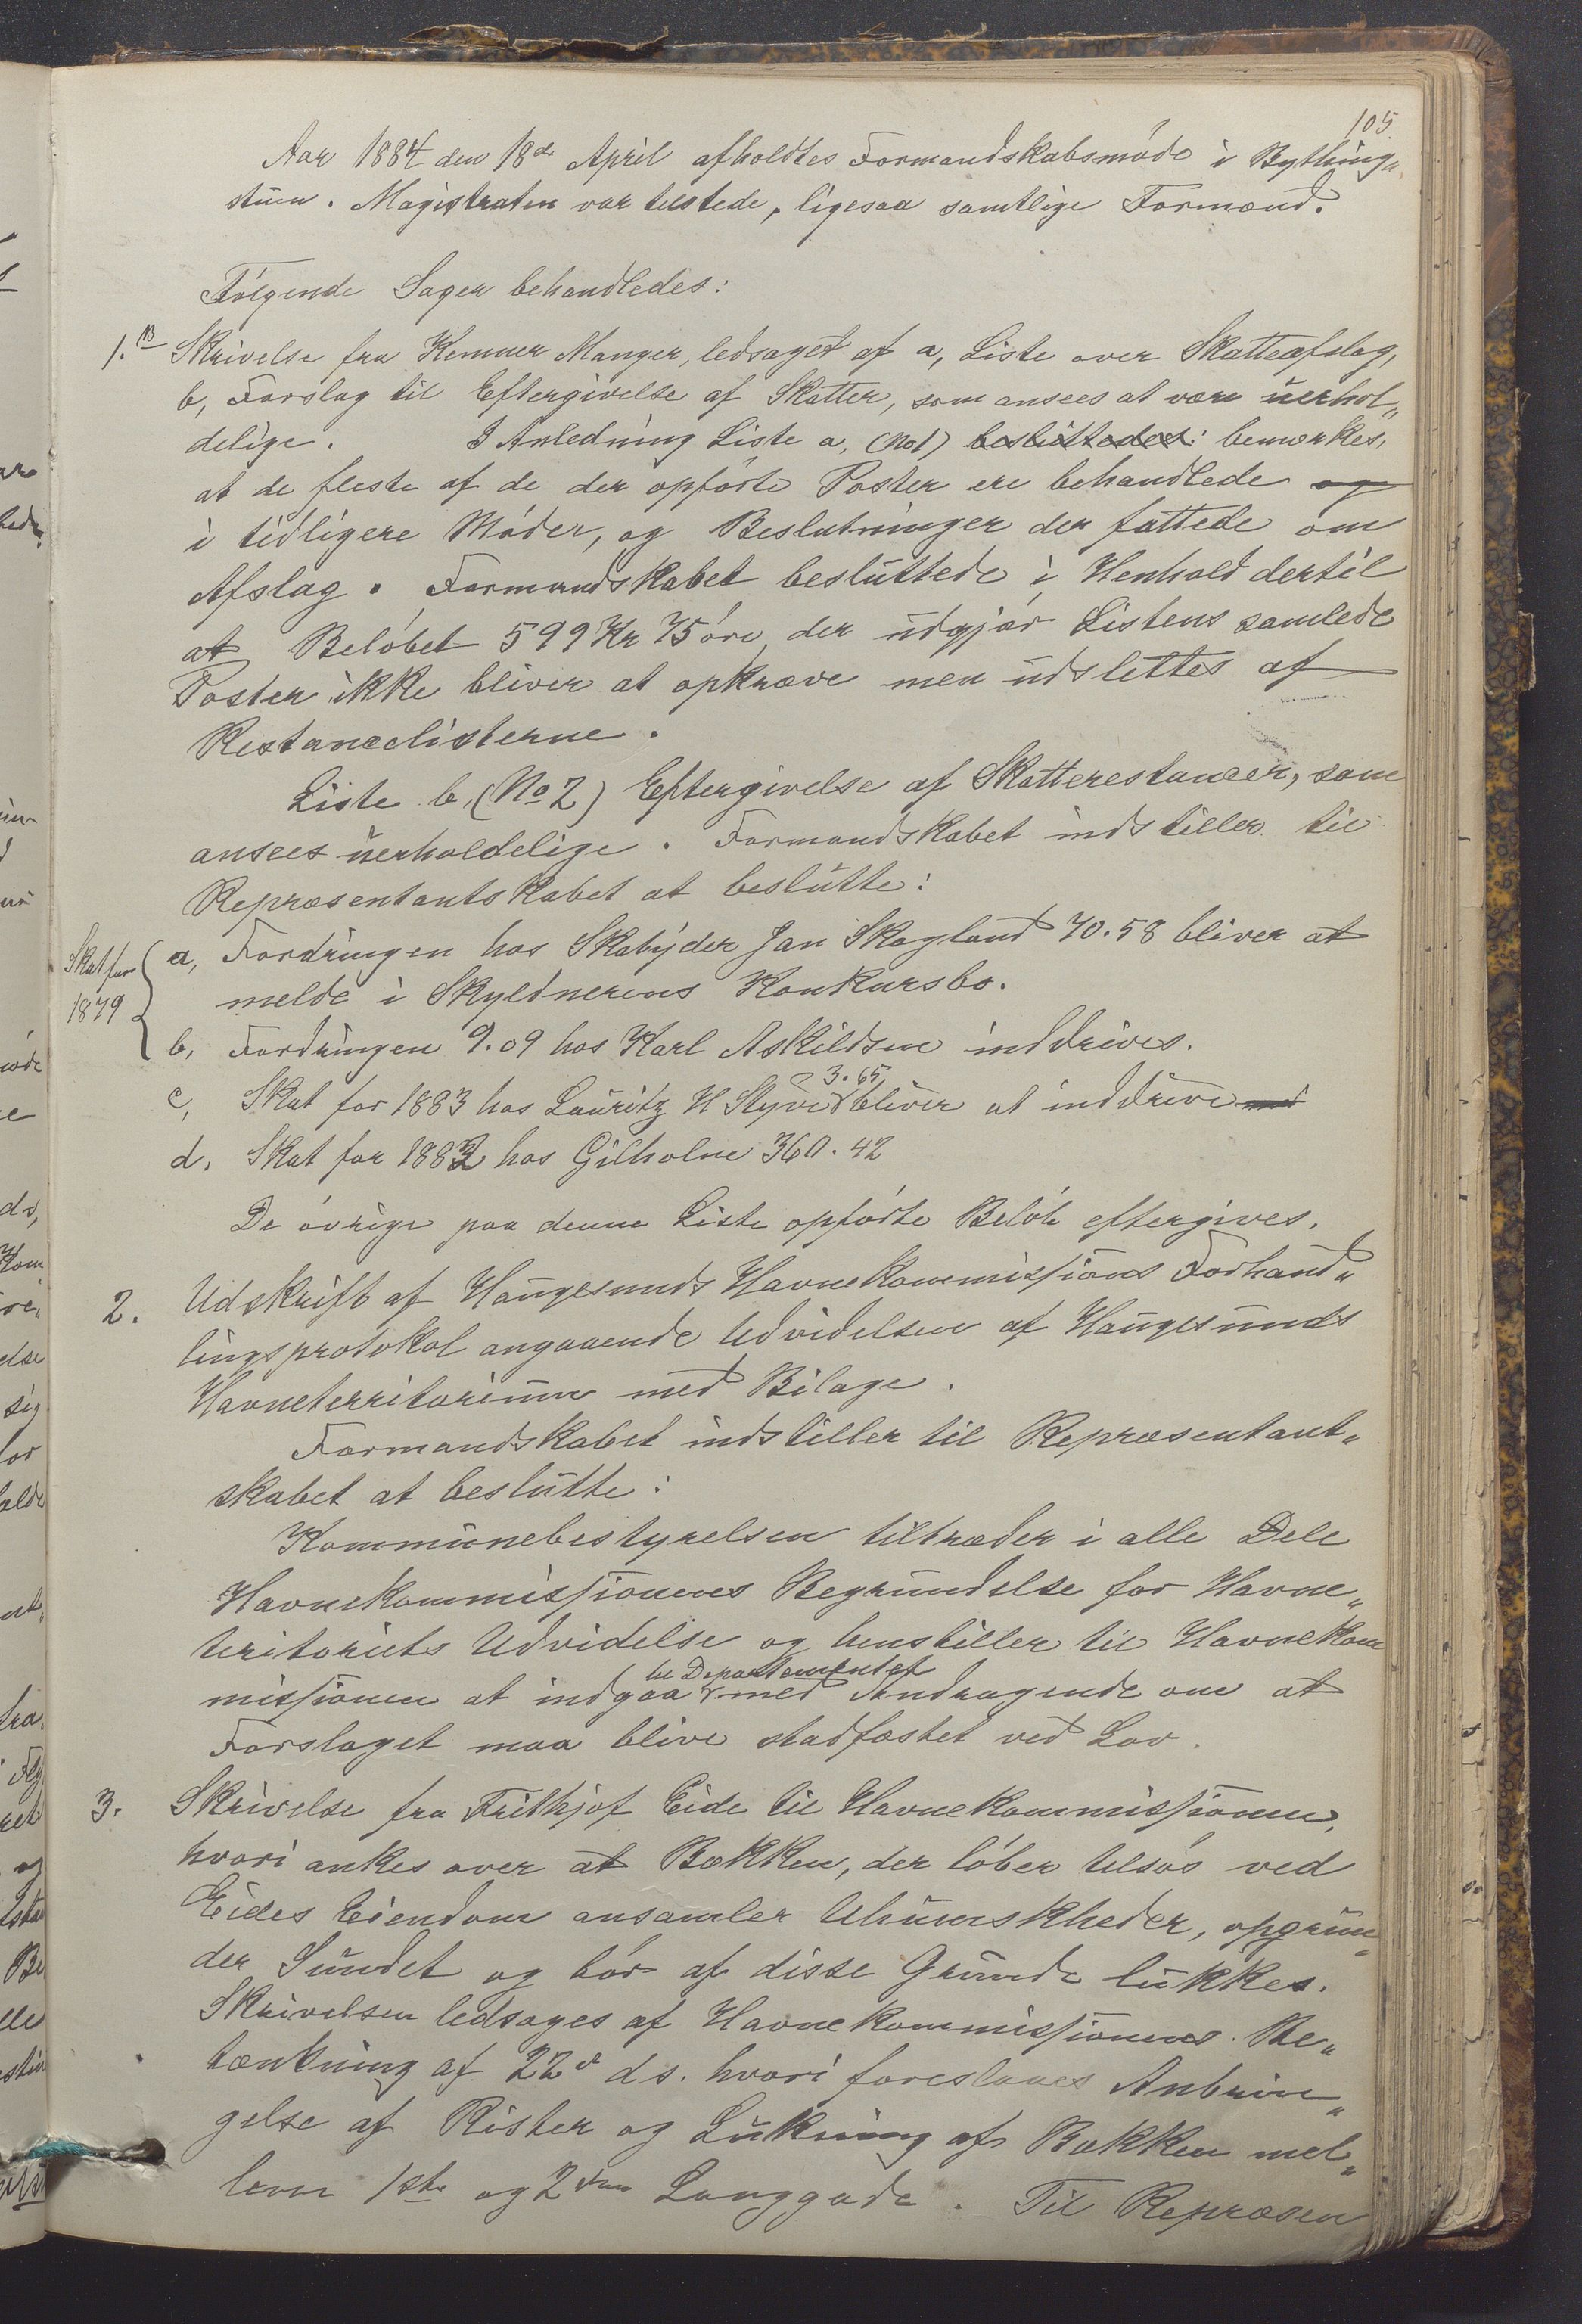 105
Aar 1884 den 18de April afholdtes Formandskabsmøde i Bythings„
stuen. Magistraten var tilstede, ligesaa samtlige Formænd.
Følgende Sager behandledes:
1. Skrivelse fra Kemner Manger, ledsaget af a, Liste over Skatteafslag,
b, Forslag til Eftergivelse af Skatter, som ansees at være uerhol„
delige. I Anledning Liste a, (No 1) besluttedes: bemærkes,
at de fleste af de der opførte Poster ere behandlede og
i tidligere Møder, og Beslutninger der fattede om
Afslag. Formandskabet besluttede i Henhold dertil
at Beløbet 599 Kr 75 øre, der udgjør Listens samlede
Poster ikke bliver at opkræve men udslettes af
Restancelisterne.
Liste b, (No 2) Eftergivelse af Skatterestancer, som
ansees uerholdelige. Formandskabet indstiller til
Repræsentantskabet at beslutte:
Skat for
1879
a, Fordringen hos Skøbyder Jan Skogland 70.58 bliver at
melde i Skyldnerens Konkursbo.
b, Fordringen 9.09 hos Karl Askildsen inddrives.
3.65
c, Skat for 1883 hos Lauritz H Styve bliver at inddrive med
d. Skat for 1883 hos Gilholm 360.42
De øvrige paa denne Liste opførte Beløb eftergives.
2. Udskrift af Haugesunds Havnekommissions Forhand„
lingsprotokol angaaende Udvidelsen af Haugesunds
Havneterritorium med Bilage.
Formandskabet indstiller til Repræsentant„
skabet at beslutte:
Kommunebestyrelsen tiltræder i alle Dele
Havnekommissionens Begrundelse for Havne„
teritoriets Udvidelse og henstiller til Havnekom
til Departementet
missionen at indgaa med Andragende om at
Forslaget maa blive stadfæstet ved Lov.
3. Skrivelse fra Frithjof Eide til Havnekommissionen,
hvori ankes over at Bækken, der løber tilsøs ved
Eides Eiendom ansamler Uhumskheder, opgrun„
der Sundet og bør af disse Grunde lukkes.
Skrivelsen ledsages af Havnekommissionens Be„
tænkning af 22d ds. hvori foreslaaes Anbrin„
gelse af Rister og Lukning af Bækken mel„
lem 1ste og 2den Langgade. Til Repræsen